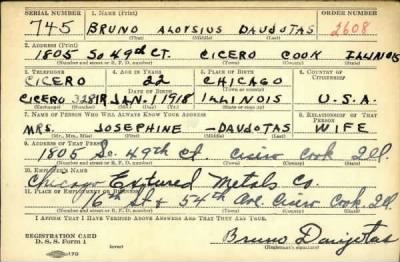 SERIAL NUMBER 1. NAME (Print) ORDER NUMBER
745 BRUNO ALOYSIUS DAUJOTAS 2608
(First) (Middle) (Last)
2. ADDRESS (Print)
1805 SO 49th CT. CICERO COOK ILLINOIS
(Number and street or R. F. D. number) (Town) (County) (State)
3. TELEPHONE 4. AGE IN YEARS 5. PLACE OF BIRTH 6. COUNTRY OF CITIZENSHIP
CICERO 22 CHICAGO
DATE OF BIRTH (Town or county)
CICERO 3281R JAN. 1 1918 ILLINOIS U.S.A.
(Exchange) (Number) (Mo.) (Day) (Yr.) (State or country)
7. NAME OF PERSON WHO WILL ALWAYS KNOW YOUR ADDRESS 8. RELATIONSHIP OF THAT PERSON
MRS. JOSEPHINE DAUJOTAS WIFE
(Mr., Mrs., Miss) (First) (Middle) (Last)
9. ADDRESS OF THAT PERSON
1805 So. 49th Ct. Cicero Cook Ill.
(Number and street or R. F. D. number) (Town) (County) (State)
10. EMPLOYER'S NAME
Chicago Extured Metals Co.
11. PLACE OF EMPLOYMENT OR BUSINESS
16th St & 54th Ave. Cicero Cook. Ill.
(Number and street or R. F. D. number) (Town) (County) (State)
I AFFIRM THAT I HAVE VERIFIED ABOVE ANSWERS AND THAT THEY ARE TRUE.
REGISTRATION CARD
D. S. S. Form 1 Bruno Daujotas
(Registrant's signature)